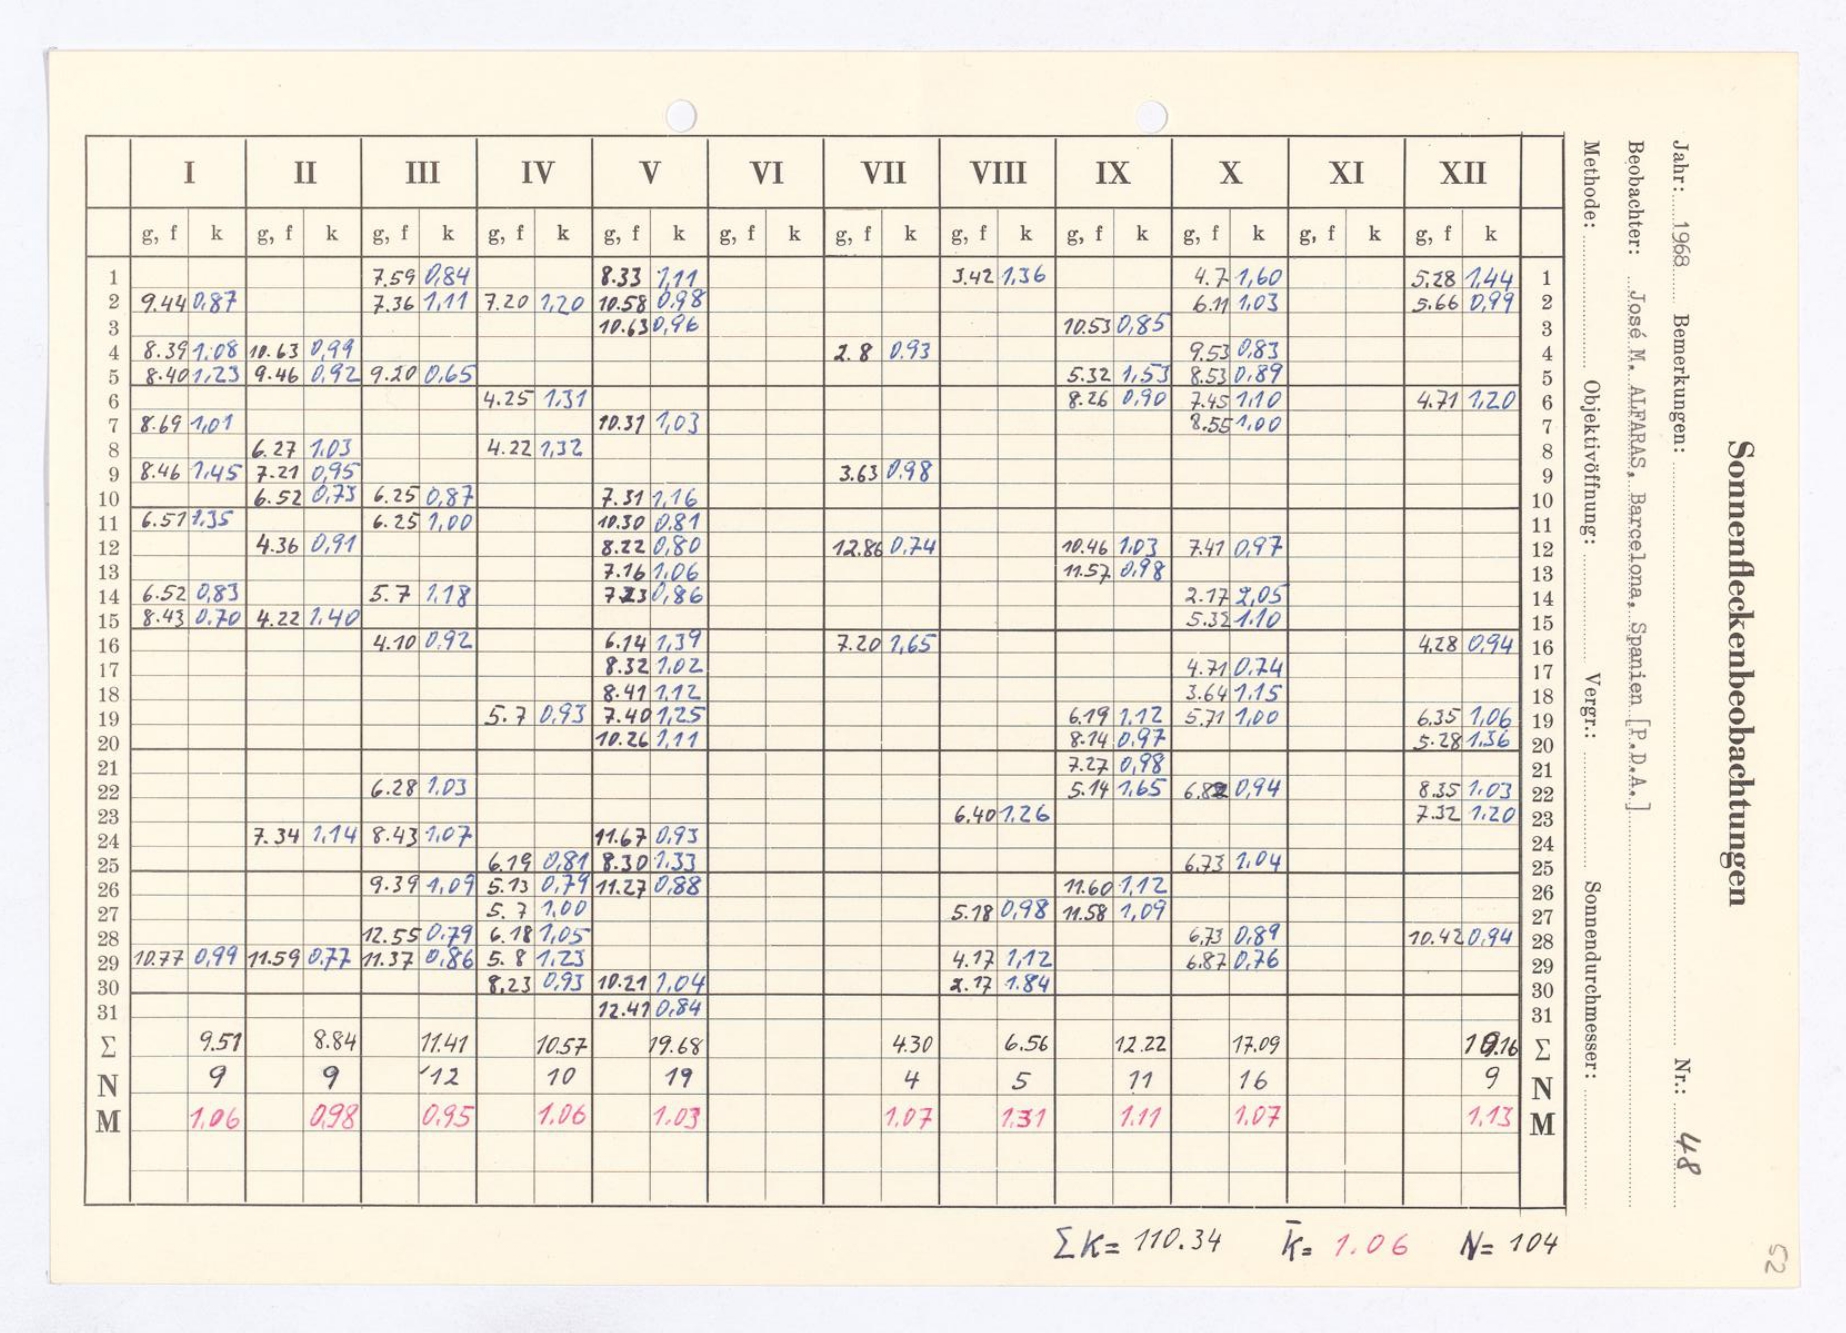 Sonnenfleckenbeobachtungen
Jahr: 1968 Bemerkungen: Nr.: 48
Beobachter: José M. ALFARAS, Barcelona, Spanien [P.D.A.]
Methode: Objektivöffnung: Vergr.: Sonnendurchmesser:
I II III IV V VI VII VIII IX X XI XII
g, f k g, f k g, f k g, f k g, f k g, f k g, f k g, f k g, f k g, f k g, f k g, f k
1 7.59 0,84 8.33 1,11 3.42 1,36 4.7 1,60 5.28 1,44 1
2 9.44 0,87 7.36 1,11 7.20 1,20 10.58 0,98 6.11 1,03 5.66 0,99 2
3 10.63 0,96 10.53 0,85 3
4 8.39 1.08 10.63 0,99 2.8 0.93 9.53 0,83 4
5 8.40 1,23 9.46 0,92 9.20 0,65 5.32 1,53 8.53 0,89 5
6 4.25 1,31 8.26 0,90 7.45 1,10 4.71 1,20 6
7 8.69 1,01 10.31 1,03 8.55 1,00 7
8 6.27 1,03 4.22 1,32 8
9 8.46 1,45 7.21 0,95 3.63 0.98 9
10 6.52 0,73 6.25 0,87 7.31 1,16 10
11 6.51 1,35 6.25 1,00 10.30 0.81 11
12 4.36 0,91 8.22 0,80 12.86 0.74 10.46 1,03 7.41 0,97 12
13 7.16 1,06 11.57 0,98 13
14 6.52 0,83 5.7 1,18 7.23 0,86 2.17 2,05 14
15 8.43 0.70 4.22 1,40 5.32 1.10 15
16 4.10 0,92 6.14 1,39 7.20 1,65 4.28 0,94 16
17 8.32 1,02 4.71 0.74 17
18 8.41 1,12 3.64 1,15 18
19 5.7 0,93 7.40 1,25 6.19 1,12 5.71 1,00 6.35 1,06 19
20 10.26 1,11 8.14 0,97 5.28 1,36 20
21 7.27 0,98 21
22 6.28 1,03 5.14 1,65 6.82 0,94 8.35 1.03 22
23 6.40 1,26 7.32 1.20 23
24 7.34 1,14 8.43 1,07 11.67 0,93 24
25 6.19 0,81 8.30 1.33 6.73 1,04 25
26 9.39 1,09 5.13 0,79 11.27 0,88 11.60 1,12 26
27 5.7 1,00 5.18 0,98 11.58 1,09 27
28 12.55 0.79 6.18 1,05 6,73 0,89 10.42 0,94 28
29 10.77 0,99 11.59 0.77 11.37 0,86 5.8 1,23 4.17 1,12 6.87 0,76 29
30 8,23 0,93 10.21 1,04 2.17 1.84 30
31 12.41 0,84 31
Σ 9.51 8.84 11.41 10.57 19.68 4.30 6.56 12.22 17.09 10.16 Σ
N 9 9 12 10 19 4 5 11 16 9 N
M 1.06 0,98 0,95 1.06 1.03 1,07 1.31 1.11 1.07 1,13 M
ΣK= 110.34 k̄= 1.06 N= 104
52